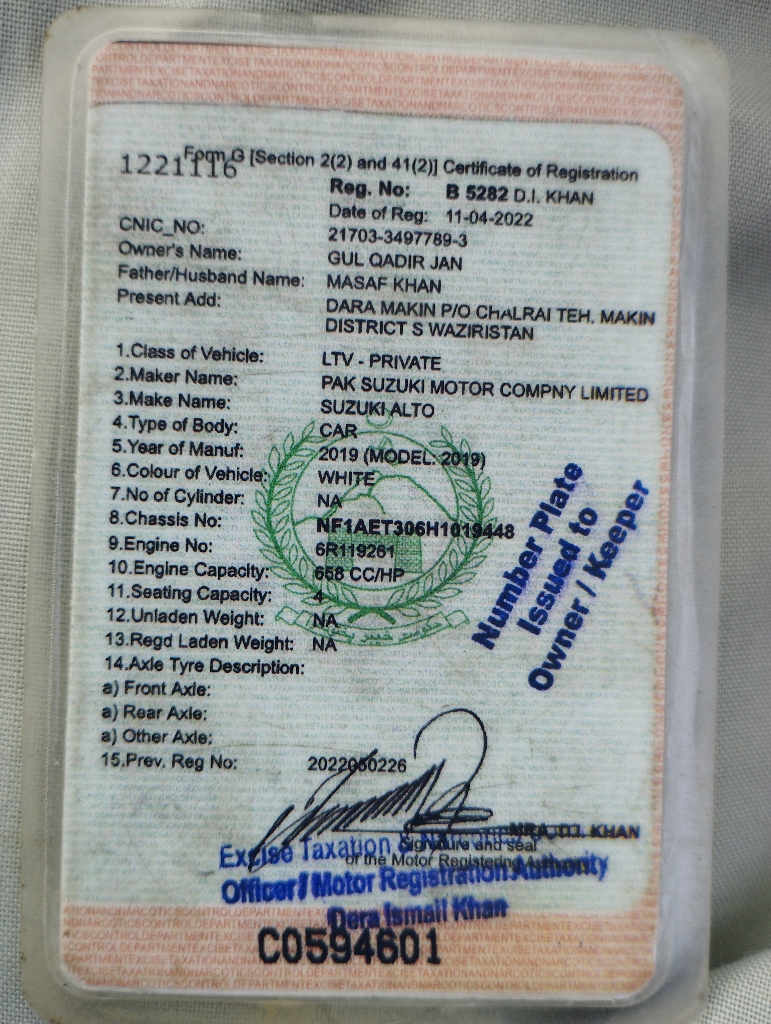 DEPARTMENTEXCISETAXATIONANDNARCOTICSCONTROLDEPARTMENTEXCISETAXATIONANDNARCOTICSCONTROL
1221116 Form G [Section 2(2) and 41(2)] Certificate of Registration
Reg. No: B 5282 D.I. KHAN
Date of Reg: 11-04-2022
CNIC_NO: 21703-3497789-3
Owner's Name: GUL QADIR JAN
Father/Husband Name: MASAF KHAN
Present Add: DARA MAKIN P/O CHALRAI TEH. MAKIN
DISTRICT S WAZIRISTAN
1.Class of Vehicle: LTV - PRIVATE
2.Maker Name: PAK SUZUKI MOTOR COMPNY LIMITED
3.Make Name: SUZUKI ALTO
4.Type of Body: CAR
5.Year of Manuf: 2019 (MODEL: 2019)
6.Colour of Vehicle: WHITE
7.No of Cylinder: NA
8.Chassis No: NF1AET306H1019448
9.Engine No: 6R119261
10.Engine Capacity: 658 CC/HP
11.Seating Capacity: 4
12.Unladen Weight: NA
13.Regd Laden Weight: NA
14.Axle Tyre Description:
a) Front Axle:
a) Rear Axle:
a) Other Axle:
15.Prev. Reg No: 2022060226
Number Plate
Issued to
Owner / Keeper
MRA, D.I. KHAN
Signature and seal
of the Motor Registering Authority
Excise Taxation &
Officer / Motor Registration Authority
Dera Ismail Khan
C0594601